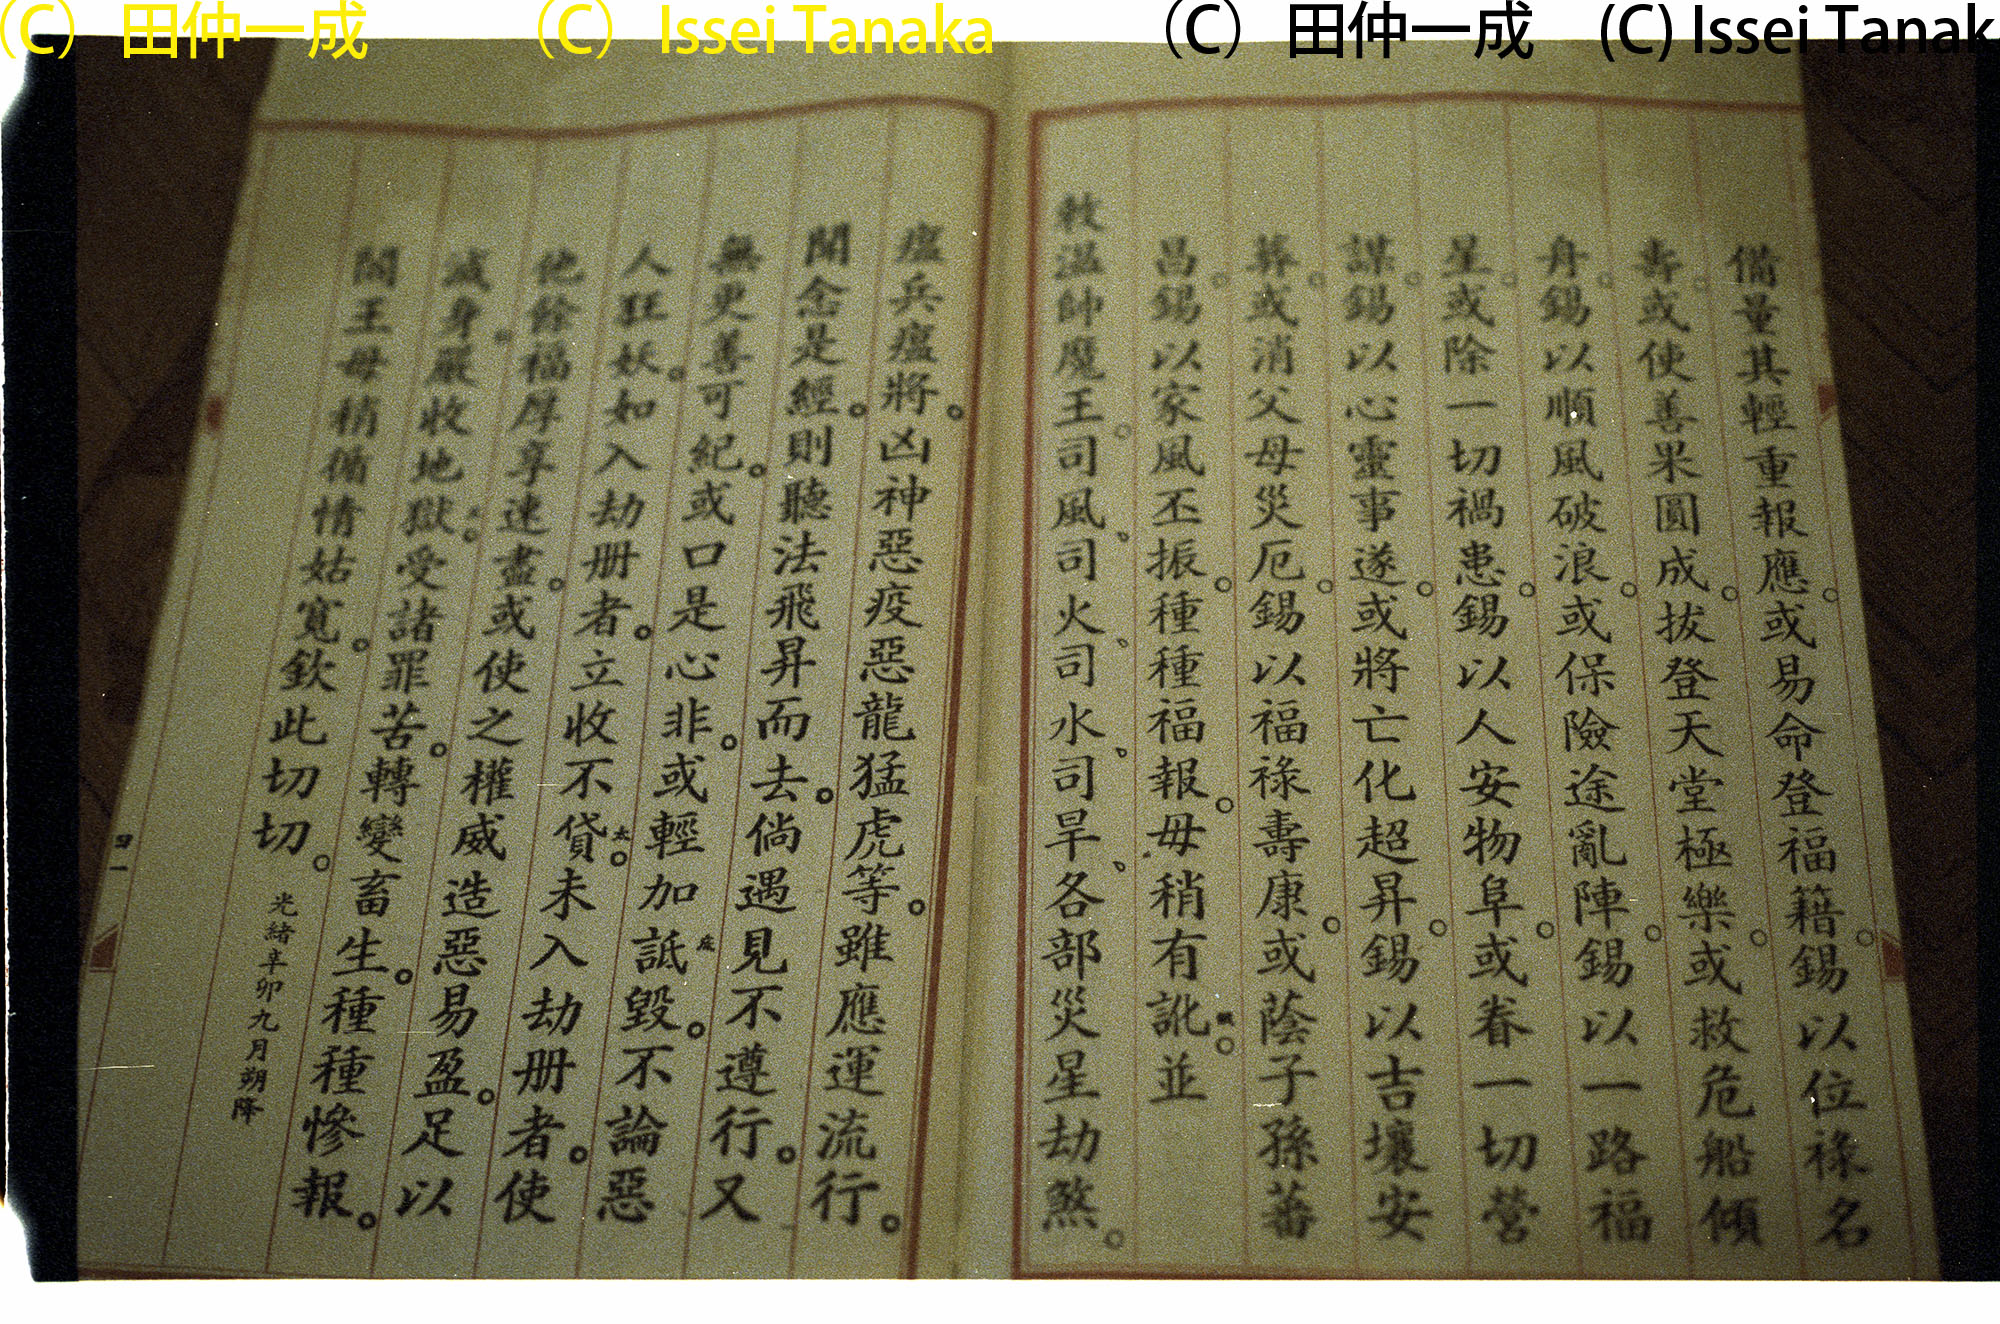 (C) 田仲一成 (C) Issei Tanaka (C) 田仲一成 (C) Issei Tanak
備量其輕重報應。或易命登福籍。錫以位祿名
壽。或使善果圓成。拔登天堂極樂。或救危船傾
舟。錫以順風破浪。或保險途亂陣。錫以一路福
星。或除一切禍患。錫以人安物阜。或眷一切營
謀。錫以心靈事遂。或將亡化超昇。錫以吉壤安
葬。或消父母災厄。錫以福祿壽康。或蔭子孫蕃
昌。錫以家風丕振。種種福報。毋稍有訛。並
敕温帥魔王。司風、司火、司水、司旱、各部災星劫煞。
瘟兵瘟將。凶神惡疫惡龍猛虎等。雖應運流行。
聞念是經。則聽法飛昇而去。倘遇見不遵行。又
無更善可紀。或口是心非。或輕加詆毀。不論惡
人狂妖。如入劫册者。立收不貸。未入劫册者。使
他餘福厚享速盡。或使之權威造惡易盈。足以
滅身。嚴收地獄。受諸罪苦。轉變畜生。種種慘報。
閻王毋稍循情姑寬。欽此切切。
光緒辛卯九月朔降
四一